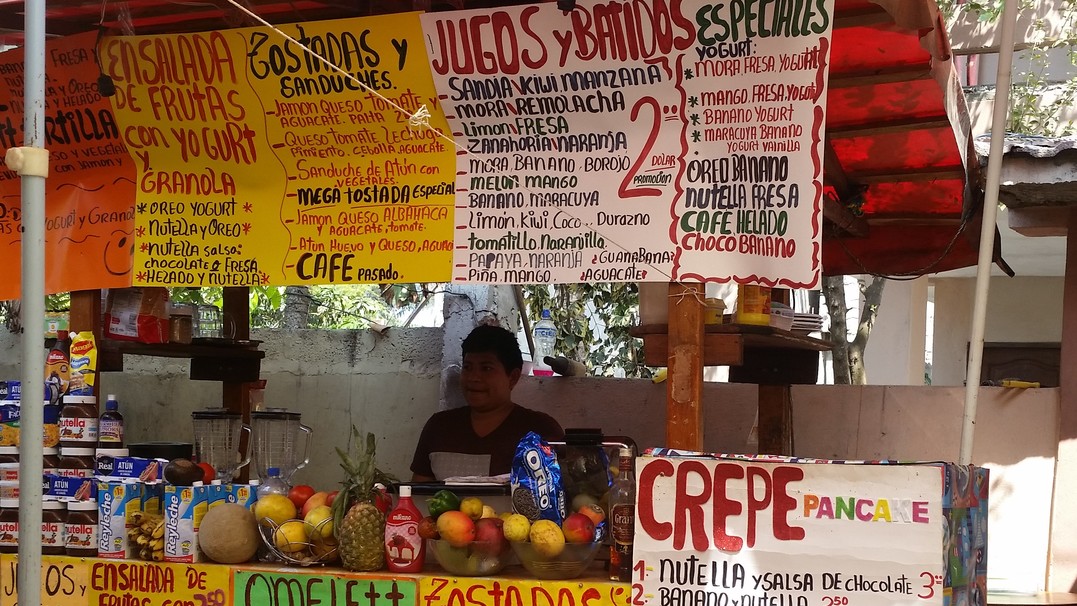 FRESA Y
HELADO
ENSALADA
DE FRUTAS
CON YOGURT
Y
GRANOLA
* OREO YOGURT *
* NUTELLA Y OREO *
* NUTELLA SALSA
CHOCOLATE Ó FRESA
* HEZADO Y NUTELLA *
TOSTADAS Y
SANDUCHES.
- JAMON QUESO TOMATE Y
AGUACATE.
- QUESO TOMATE LECHUGA
PIMIENTO. CEBOLLA, AGUACATE
- SANDUCHE DE ATÚN CON
VEGETALES.
MEGA TOSTADA ESPECIAL
- JAMON QUESO ALBAHACA
Y AGUACATE, TOMATE.
- ATUN HUEVO Y QUESO,
- CAFE PASADO.
JUGOS Y BATIDOS
- SANDIA KIWI MANZANA
- MORA REMOLACHA
- LIMON FRESA
- ZANAHORIA NARANJA
- MORA BANANO. BOROJO
- MELON MANGO
- BANANO. MARACUYA
- LIMON, KIWI, COCO. DURAZNO
- TOMATILLO, NARANJILLA.
- PAPAYA, NARANJA GUANABANA
- PIÑA. MANGO. AGUACATE
2.00
DOLAR
PROMOCION
ESPECIALES
YOGURT:
* MORA FRESA, YOGURT
* MANGO, FRESA YOGURT
* BANANO YOGURT
* MARACUYA BANANO
YOGURT VAINILLA
OREO BANANO
NUTELLA FRESA
CAFE HELADO
CHOCO BANANO
CIELO
MAGGI
nutella
Real ATÚN
ATÚN
nutella
nutella
nutella
Reyleche
OREO
Gran
CREPE PANCAKE
1- NUTELLA Y SALSA DE CHOCOLATE 3.00
2- BANANO Y NUTELLA 2.50
JUGOS Y ENSALADA DE
FRUTAS CON 2.50
OMELETT
TOSTADAS